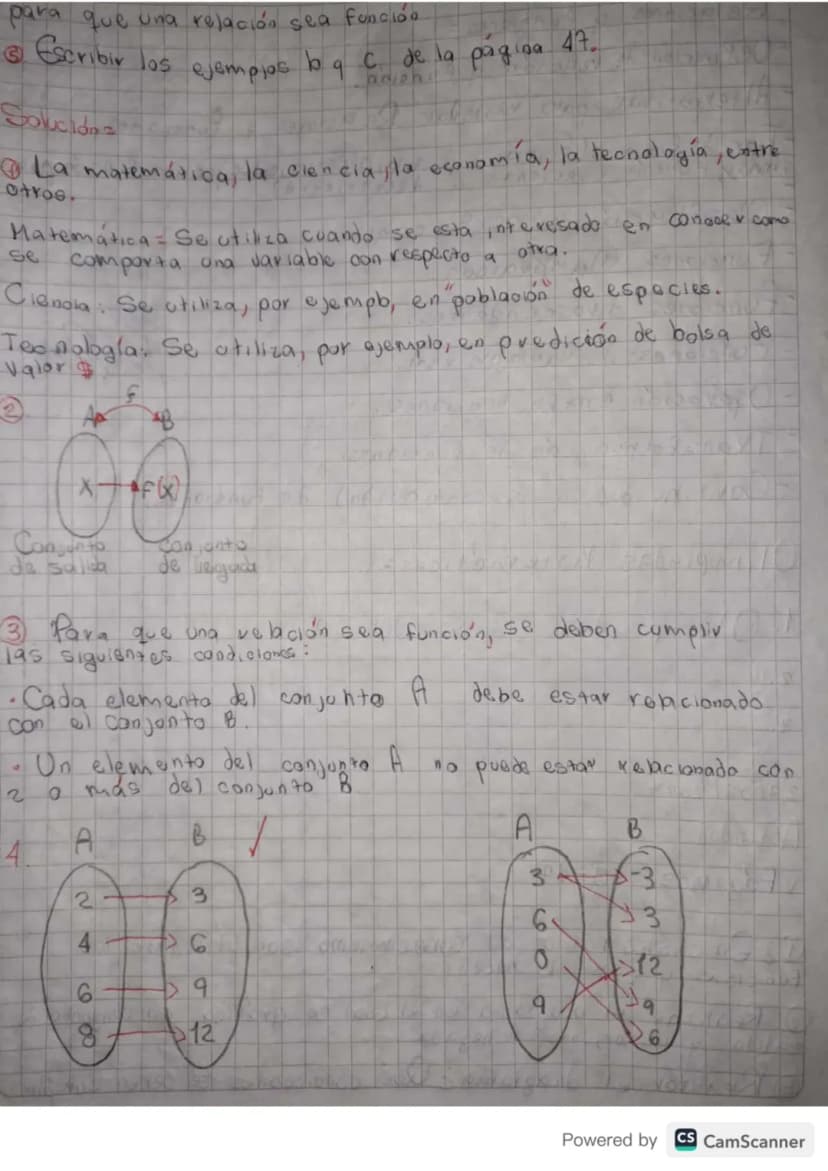 para que una relación sea función
⑤ Escribir los ejemplos b y c de la página 47.
Solución=
① La matemática, la ciencia, la economía, la tecnología, entre
otros.
Matemática= Se utiliza cuando se esta interesado en conocer como
se comporta una variable con respecto a otra.
Ciencia: Se utiliza, por ejemplo, en "población" de especies.
Tecnología: Se utiliza, por ejemplo, en predicción de bolsa de
valor $
② f
A B
X f(x)
Conjunto conjunto
de salida de llegada
③ Para que una relación sea función, se deben cumplir
las siguientes condiciones:
• Cada elemento del conjunto A debe estar relacionado
con el conjunto B.
• Un elemento del conjunto A no puede estar relacionado con
2 o más del conjunto B
4. A B ✓ A B
2 3 3 -3
4 6 6 3
6 9 0 12
8 12 9 9
6
Powered by CS CamScanner